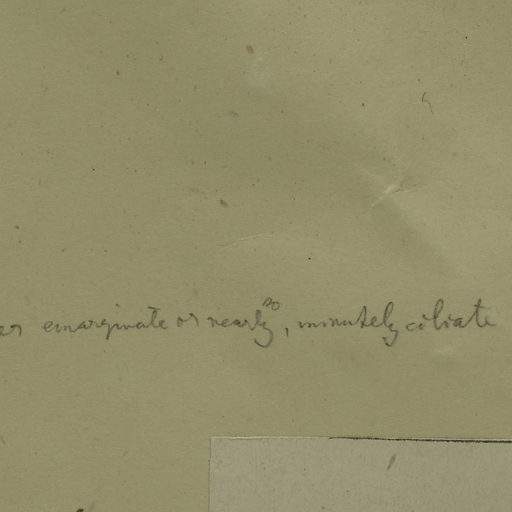 emarginate or nearly so, minutely ciliate